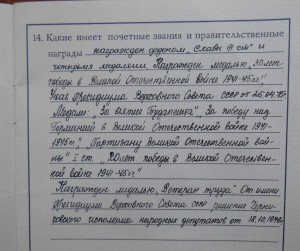 14. Какие имеет почетные звания и правительственные
награды награжден орденом „Славы III ст“ и
четырьмя медалями. Награжден медалью „30 лет
победы в Великой Отечественной войне 1941-45гг“
Указ Президиума Верховного Совета СССР от 25.04.75г
Медали: „За взятие Будапешта“, За победу над
Германией в Великой Отечественной войне 1941-
1945гг“, „Партизану Великой Отечественной вой-
ны“ I ст. „20 лет победы в Великой Отечествен-
ной войне 1941-45гг“
Награжден медалью „Ветеран труда“ От имени
Президиума Верховного Совета СССР решение
исполкома народных депутатов от 18.10.